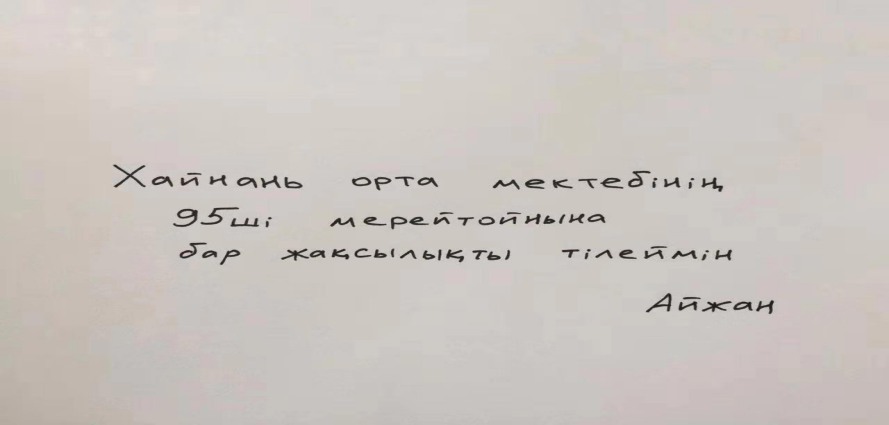 Хайнань орта мектебінің
95ші мерейтойнына
бар жақсылықты тілеймін
Айжан